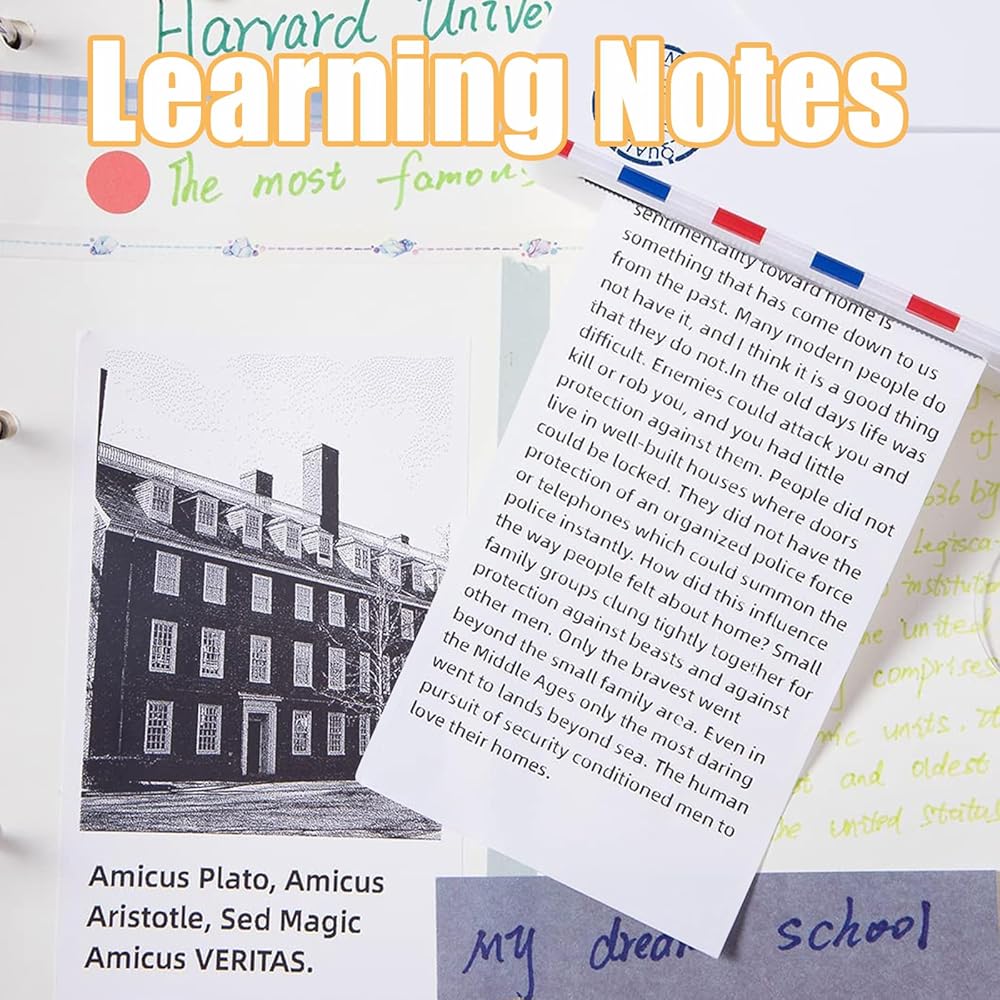 Harvard Unive
Learning Notes
QUAL
The most famous
sentimentality toward home is
something that has come down to us
from the past. Many modern people do
not have it, and I think it is a good thing
that they do not.In the old days life was
difficult. Enemies could attack you and
kill or rob you, and you had little
protection against them. People did not
live in well-built houses where doors
could be locked. They did not have the
protection of an organized police force
or telephones which could summon the
police instantly. How did this influence
the way people felt about home? Small
family groups clung tightly together for
protection against beasts and against
other men. Only the bravest went
beyond the small family area. Even in
the Middle Ages only the most daring
went to lands beyond sea. The human
pursuit of security conditioned men to
love their homes.
of
636 by
Legisca-
institution
the united
comprises
units. It
and oldest
the united status
Amicus Plato, Amicus
Aristotle, Sed Magic
Amicus VERITAS.
My dream school